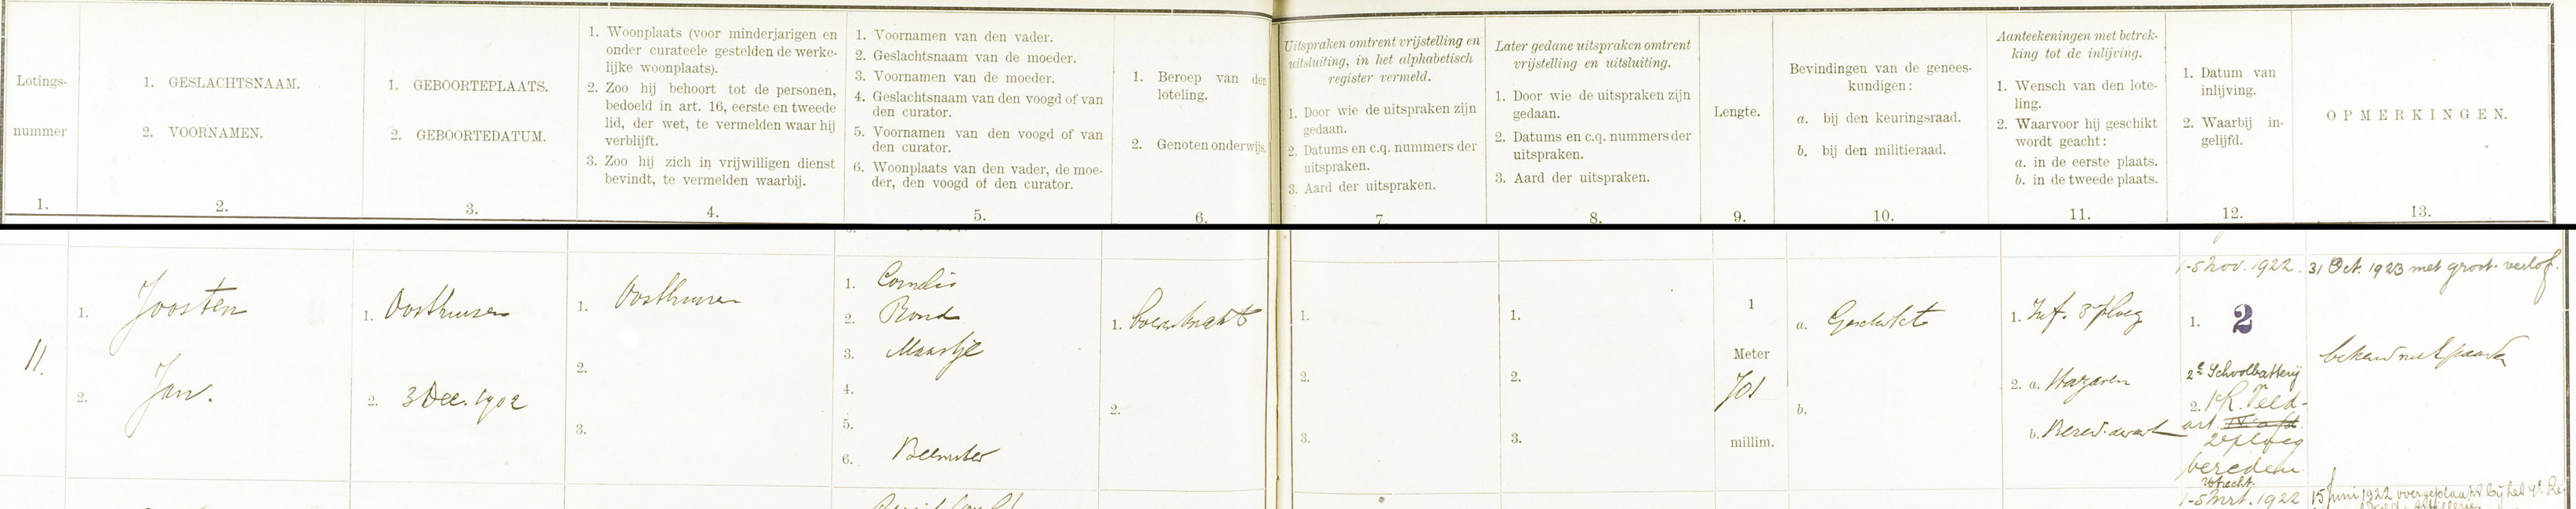 Lotings-
nummer
1.
1. GESLACHTSNAAM.
2. VOORNAMEN.
2.
1. GEBOORTEPLAATS.
2. GEBOORTEDATUM.
3.
1. Woonplaats (voor minderjarigen en
onder curateele gestelden de werke-
lijke woonplaats).
2. Zoo hij behoort tot de personen,
bedoeld in art. 16, eerste en tweede
lid, der wet, te vermelden waar hij
verblijft.
3. Zoo hij zich in vrijwilligen dienst
bevindt, te vermelden waarbij.
4.
1. Voornamen van den vader.
2. Geslachtsnaam van de moeder.
3. Voornamen van de moeder.
4. Geslachtsnaam van den voogd of van
den curator.
5. Voornamen van den voogd of van
den curator.
6. Woonplaats van den vader, de moe-
der, den voogd of den curator.
5.
1. Beroep van den
loteling.
2. Genoten onderwijs.
6.
Uitspraken omtrent vrijstelling en
uitsluiting, in het alphabetisch
register vermeld.
1. Door wie de uitspraken zijn
gedaan.
2. Datums en c.q. nummers der
uitspraken.
3. Aard der uitspraken.
7.
Later gedane uitspraken omtrent
vrijstelling en uitsluiting.
1. Door wie de uitspraken zijn
gedaan.
2. Datums en c.q. nummers der
uitspraken.
3. Aard der uitspraken.
8.
Lengte.
9.
Bevindingen van de genees-
kundigen:
a. bij den keuringsraad.
b. bij den militieraad.
10.
Aanteekeningen met betrek-
king tot de inlijving.
1. Wensch van den lote-
ling.
2. Waarvoor hij geschikt
wordt geacht:
a. in de eerste plaats.
b. in de tweede plaats.
11.
1. Datum van
inlijving.
2. Waarbij in-
gelijfd.
12.
OPMERKINGEN.
13.
11.
1. Joosten
2. Jan.
1. Oosthuizen
2. 3 Dec. 1902
1. Oosthuizen
2.
3.
1. Cornelis
2. Bond
3. Maartje
4.
5.
6. Beemster
1. boerenknecht
2.
1.
2.
3.
1.
2.
3.
1
Meter
701
millim.
a. Geschikt
b.
1. Inf. 3e ploeg
2. a. Huzaren
b. Bered. art
1-5 Nov. 1922.
1. 2
2e Schoolbatterij
2. 1 R. Veld-
art.
2e ploeg
bereden
Utrecht.
1-5 Mrt. 1922
31 Oct. 1923 met groot. verlof.
bekend met paarden
15 Juni 1922 overgeplaatst bij het 4e Re